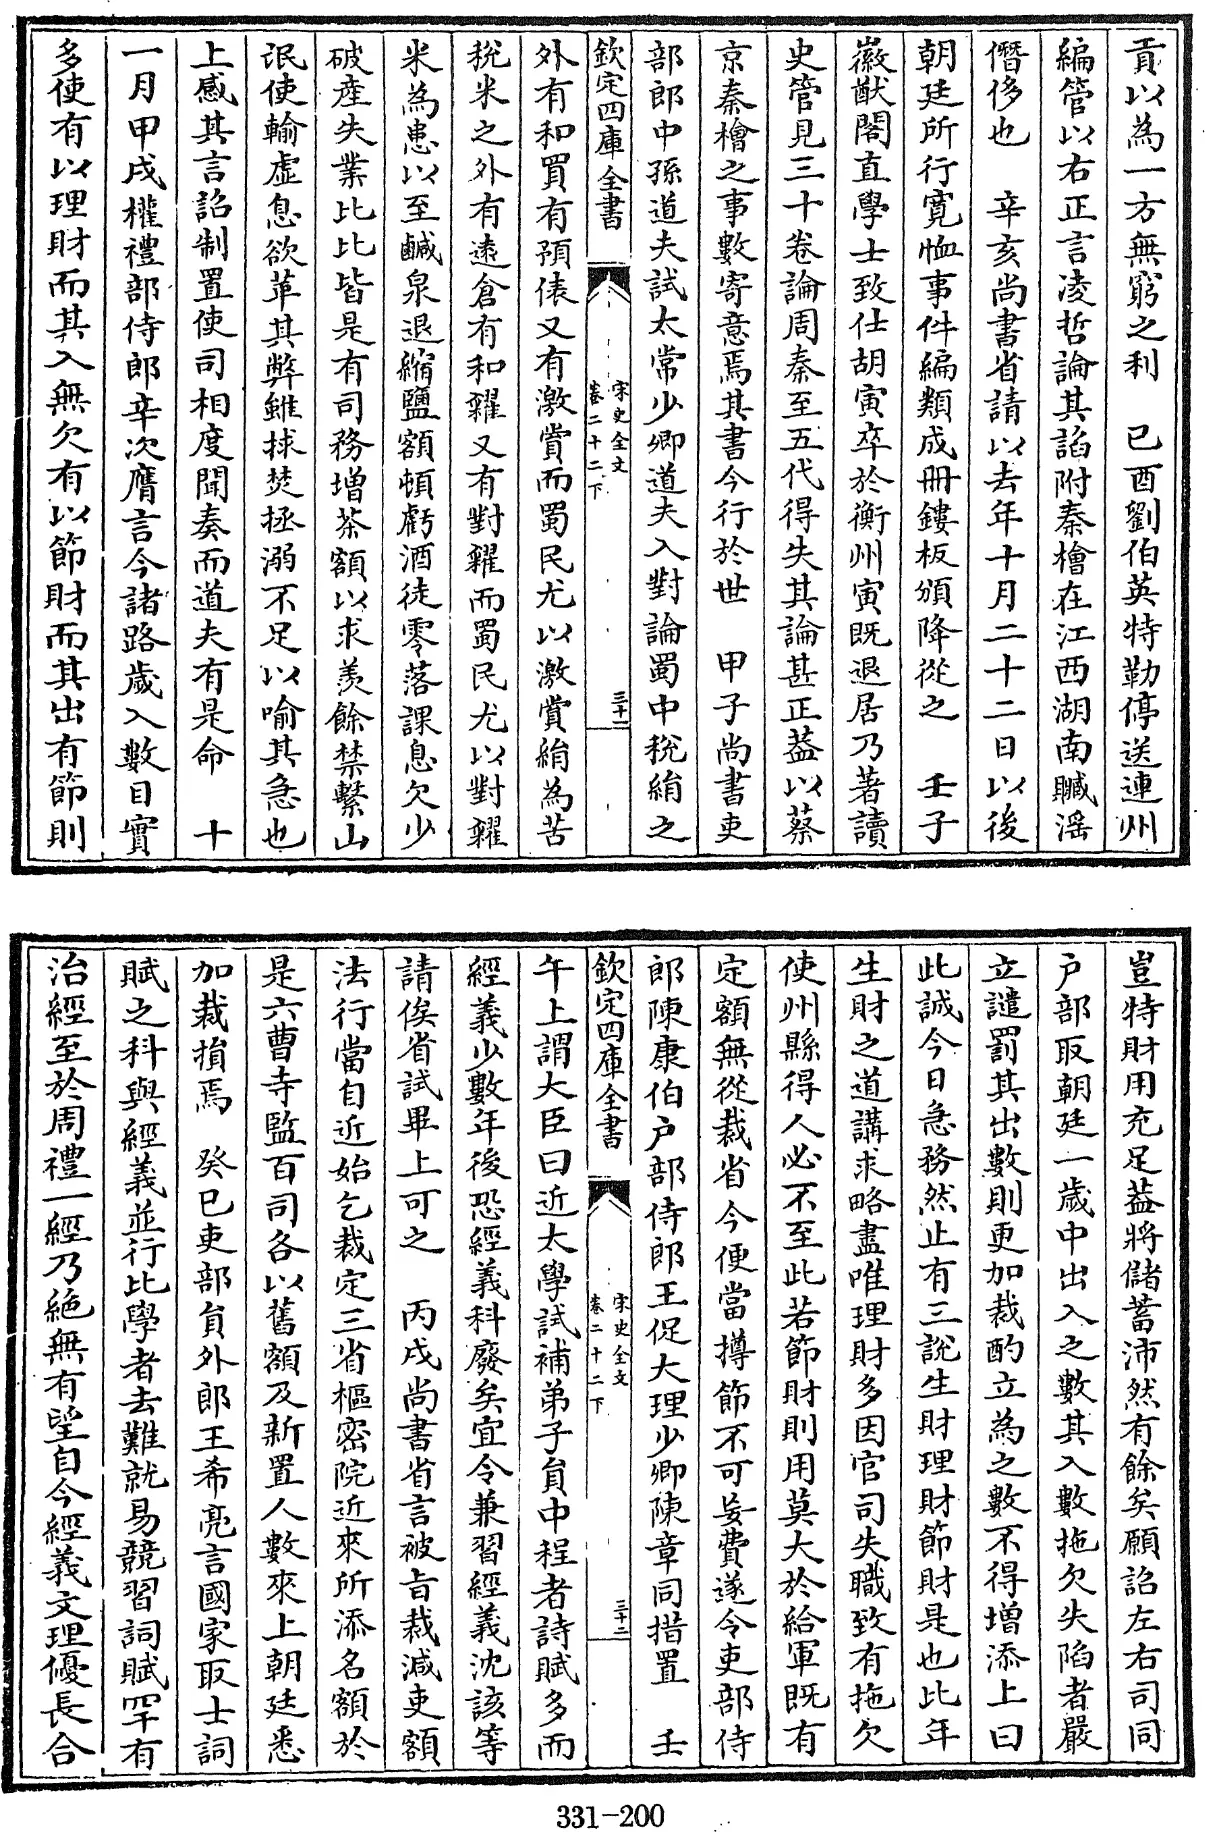 貢以為一方無窮之利　已酉劉伯英特勒停送連州
編管以右正言凌哲論其諂附秦檜在江西湖南贓滛
僭侈也　辛亥尚書省請以去年十月二十二日以後
朝廷所行寛恤事件編類成冊鏤板頒降從之　壬子
徽猷閣直學士致仕胡寅卒於衡州寅既退居乃著讀
史管見三十卷論周秦至五代得失其論甚正葢以蔡
京秦檜之事數寄意焉其書今行於世　甲子尚書吏
部郎中孫道夫試太常少卿道夫入對論蜀中稅絹之
欽定四庫全書
宋史全文
卷二十二下
三十一
外有和買有預俵又有激賞而蜀民尤以激賞絹為苦
稅米之外有逺倉有和糴又有對糴而蜀民尤以對糴
米為患以至鹹泉退縮鹽額頓虧酒徒零落課息欠少
破產失業比比皆是有司務增茶額以求羡餘禁繫山
氓使輸虛息欲革其弊雖捄焚拯溺不足以喻其急也
上感其言詔制置使司相度聞奏而道夫有是命　十
一月甲戌權禮部侍郎辛次膺言今諸路歲入數目實
多使有以理財而其入無欠有以節財而其出有節則
豈特財用充足葢將儲蓄沛然有餘矣願詔左右司同
户部取朝廷一歲中出入之數其入數拖欠失陷者嚴
立譴罰其出數則更加裁酌立為之數不得增添上曰
此誠今日急務然止有三說生財理財節財是也比年
生財之道講求略盡唯理財多因官司失職致有拖欠
使州縣得人必不至此若節財則用莫大於給軍既有
定額無從裁省今便當撙節不可妄費遂令吏部侍
郎陳康伯户部侍郎王俁大理少卿陳章同措置　壬
欽定四庫全書
宋史全文
卷二十二下
三十二
午上謂大臣曰近太學試補弟子員中程者詩賦多而
經義少數年後恐經義科廢矣宜令兼習經義沈該等
請俟省試畢上可之　丙戌尚書省言被旨裁減吏額
法行當自近始乞裁定三省樞密院近來所添名額於
是六曹寺監百司各以舊額及新置人數來上朝廷悉
加裁損焉　癸巳吏部員外郎王希亮言國家取士詞
賦之科與經義並行比學者去難就易競習詞賦罕有
治經至於周禮一經乃絶無有望自今經義文理優長合
331-200